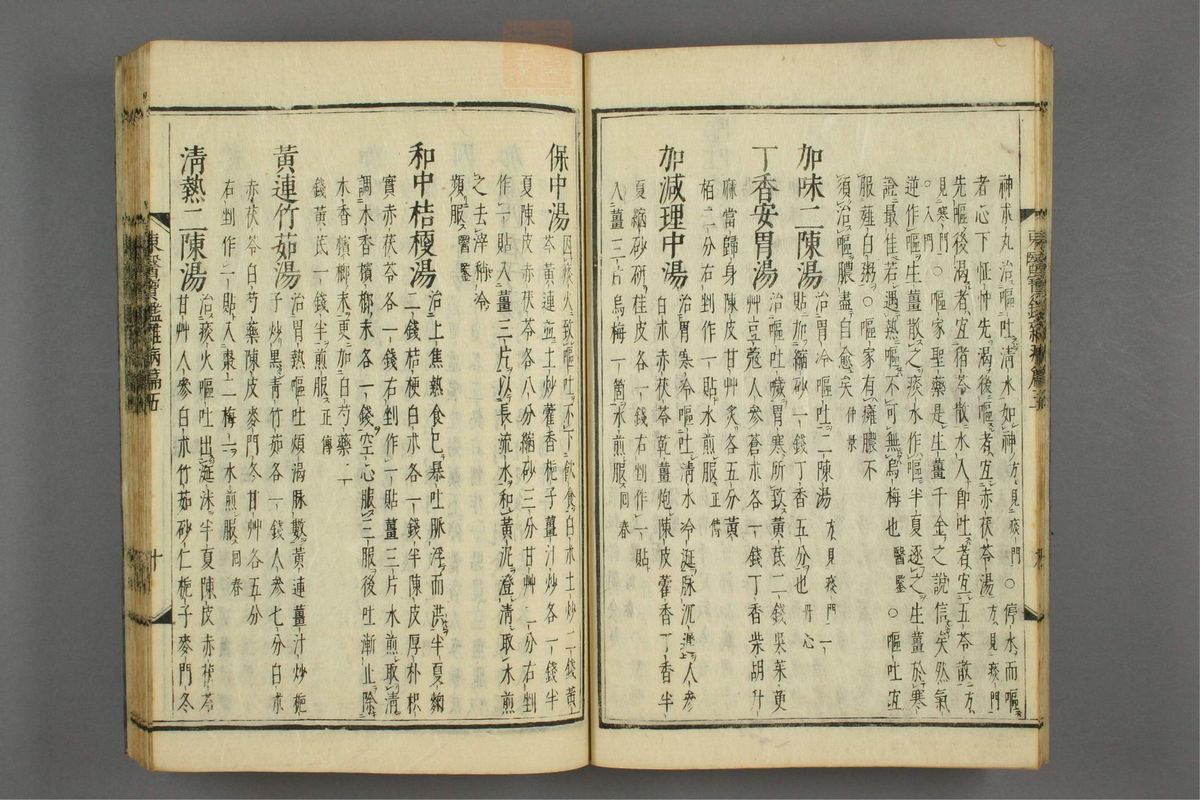 神朮丸治嘔吐淸水如神方見痰門○停水而嘔
者心下怔忡先渴後嘔者宜赤茯苓湯方見痰門
先嘔後渴者宜猪苓散水入卽吐者宜五苓散方
見寒門○嘔家聖藥是生薑千金之說信矣然氣
逆作嘔生薑散之痰水作嘔半夏逐之生薑於寒
證最佳若遇熱嘔不可無烏梅也醫鑒○嘔吐宜
服薤白粥○嘔家有癰膿不
須治嘔膿盡自愈矣仲景
加味二陳湯治胃冷嘔吐二陳湯方見痰門一
貼加縮砂一錢丁香五分也丹心
丁香安胃湯治嘔吐噦胃寒所致黃芪二錢吳茱萸
艸豆蔻人參蒼朮各一錢丁香柴胡升
麻當歸身陳皮甘艸灸各五分黃
栢二分右剉作一貼水煎服正傳
加減理中湯治胃寒冷嘔吐淸水冷涎脉沉遲人參
白朮赤茯苓乾薑炮陳皮藿香丁香半
夏縮砂硏桂皮各一錢右剉作二貼
入薑三片烏梅一箇水煎服回春
保中湯因痰火致嘔吐不下飮食白朮土炒二錢黃
芩黃連並土炒藿香梔子薑汁炒各一錢半
夏陳皮赤茯苓各八分縮砂三分甘艸一分右剉
作二貼入薑三片以長流水和黃泥澄淸取水煎
之去滓稍冷
頻服醫鑒
和中桔梗湯治上焦熱食已暴吐脉浮而洪半夏麴
二錢桔梗白朮各一錢半陳皮厚朴枳
實赤茯苓各一錢右剉作一貼薑三片水煎取淸
調木香檳榔末各一錢空心服三服後吐漸止除
木香檳榔末更加白芍藥二
錢黃芪一錢半煎服正傳
黃連竹茹湯治胃熱嘔吐煩渴脉數黃連薑汁炒梔
子炒黑靑竹茹各一錢人參七分白朮
赤茯苓白芍藥陳皮麥門冬甘艸各五分
右剉作二貼入棗二梅一水煎服回春
淸熱二陳湯治痰火嘔吐出涎沫半夏陳皮赤茯苓
甘艸人參白朮竹茹砂仁梔子麥門冬
東醫寶鑑雜病篇卷五
十